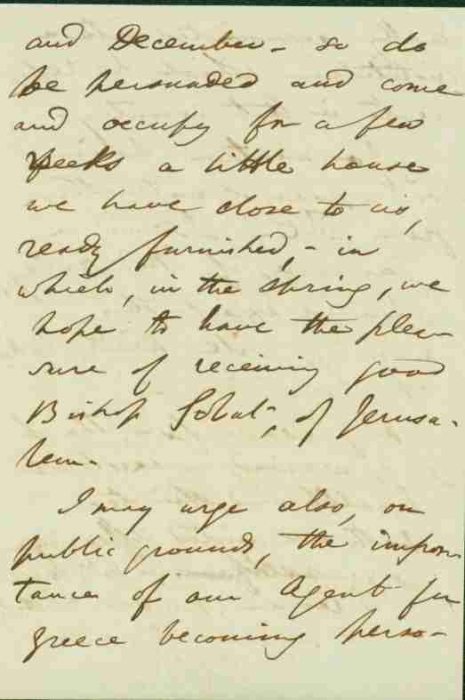 and December - so do
be persuaded and come
and occupy for a few
weeks a little house
we have close to us,
ready furnished, - in
which, in the spring, we
hope to have the plea-
sure of receiving good
Bishop Gobat, of Jerusa-
lem.
I may urge also, on
public grounds, the impor-
tance of our Agent for
Greece becoming perso-